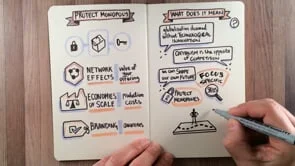 PROTECT MONOPOLY
NETWORK
EFFECTS
value of
your
offering
ECONOMIES
OF SCALE
Production
costs
BRANDING
WHAT DOES IT MEAN?
globalization doomed
without TECHNOLOGICAL
INNOVATION
is the opposite
of COMPETITION
We can SHAPE
our own FUTURE
FOCUS
SPECIFIC
PROTECT
MONOPOLIES